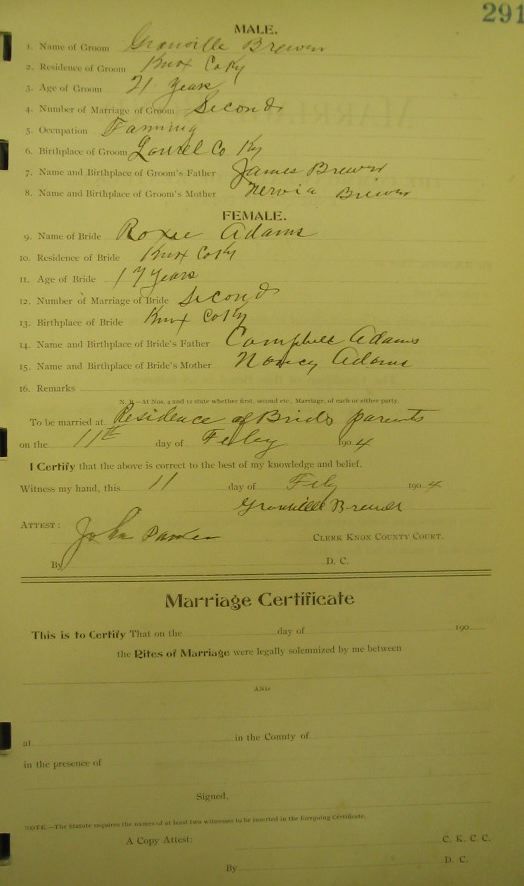 291
MALE.
1. Name of Groom Granville Brewer
2. Residence of Groom Knox Co Ky
3. Age of Groom 21 years
4. Number of Marriage of Groom Second
5. Occupation Farming
6. Birthplace of Groom Laurel Co Ky
7. Name and Birthplace of Groom's Father James Brewer
8. Name and Birthplace of Groom's Mother Nervia Brewer
FEMALE.
9. Name of Bride Roxie Adams
10. Residence of Bride Knox Co Ky
11. Age of Bride 17 years
12. Number of Marriage of Bride Second
13. Birthplace of Bride Knox Co Ky
14. Name and Birthplace of Bride's Father Campbell Adams
15. Name and Birthplace of Bride's Mother Nancy Adams
16. Remarks
N. B.—At Nos. 4 and 12 state whether first, second etc., Marriage, of each or either party.
To be married at Residence of Brids parents
on the 11th day of Feby 1904
I Certify that the above is correct to the best of my knowledge and belief.
Witness my hand, this 11 day of Feby 1904
Granville Brewer
ATTEST: John Parker CLERK KNOX COUNTY COURT.
By D. C.
Marriage Certificate
This is to Certify That on the day of 190
the Rites of Marriage were legally solemnized by me between
AND
at in the County of
in the presence of
Signed,
NOTE.—The Statute requires the names of at least two witnesses to be inserted in the foregoing Certificate.
A Copy Attest: C. K. C. C.
By D. C.